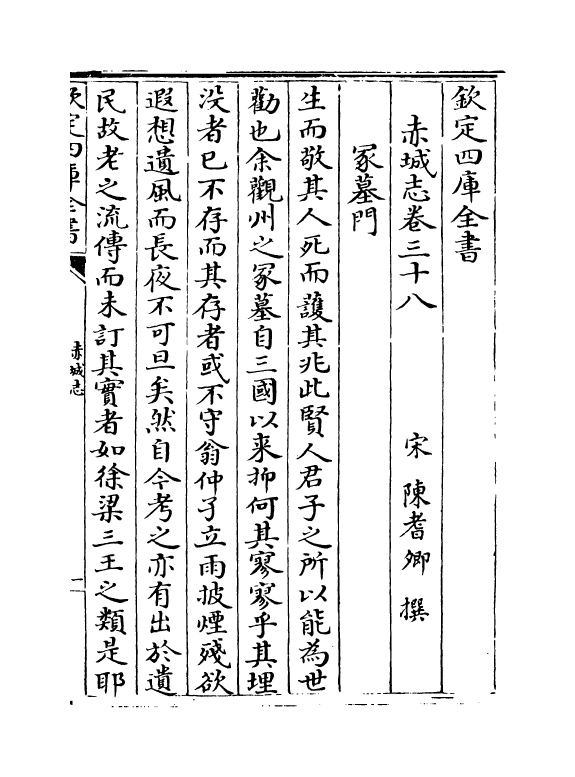 欽定四庫全書
赤城志卷三十八
宋 陳耆卿 撰
冡墓門
生而敬其人死而護其兆此賢人君子之所以能為世
勸也余觀州之冡墓自三國以来抑何其寥寥乎其埋
没者已不存而其存者或不守翁仲孑立雨披煙殘欲
遐想遺風而長夜不可旦矣然自今考之亦有出於遺
民故老之流傳而未訂其實者如徐梁三王之類是耶
欽定四庫全書
赤城志
一